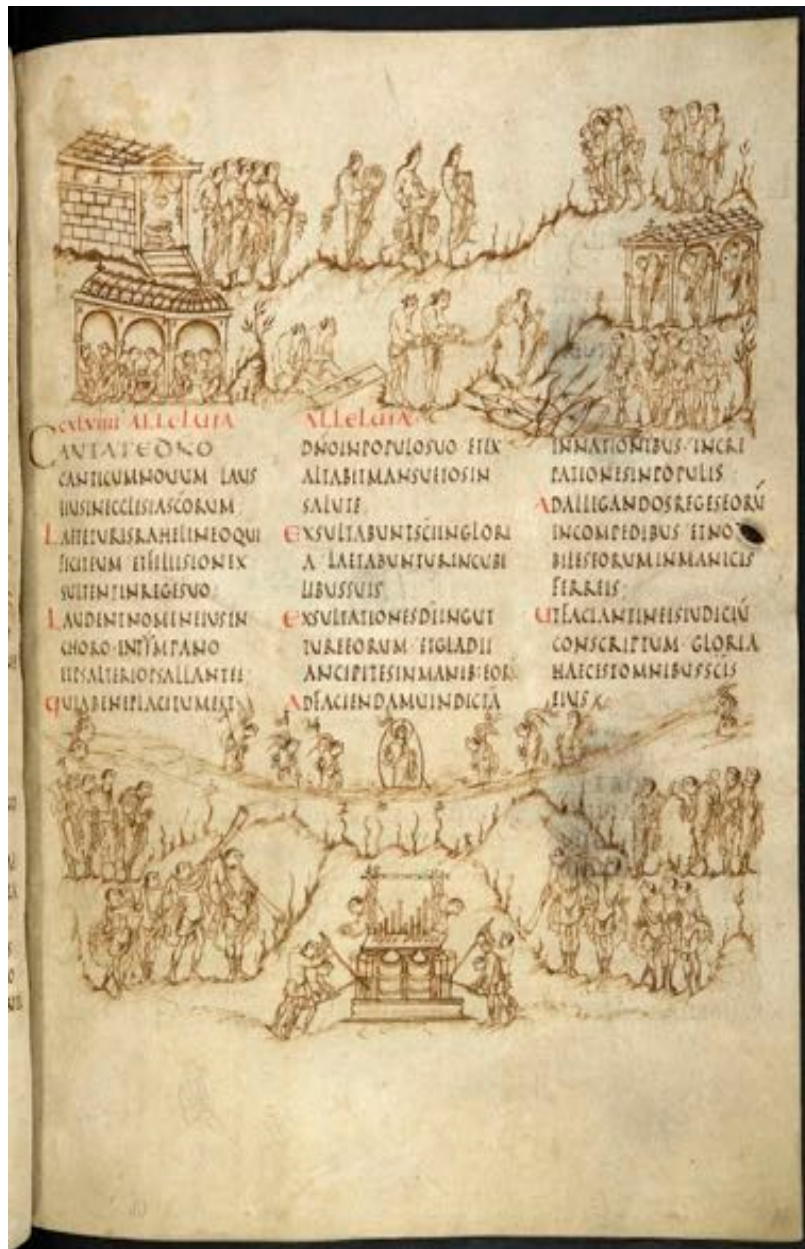 CXLVIIII ALLELUIA
CANTATE DN̄O
CANTICUMNOUUM LAUS
EIUSINECCLESIASC̄ORUM
LAETETURISRAHELINEOQUI
FECITEUM ETFILIISIONEX
SULTENTINREGESUO
LAUDENTNOMENEIUSIN
CHORO INTYMPANO
ETPSALTERIOPSALLANTEI
QUIABENEPLACITUMEST
ALLELUIA
DN̄OINPOPULOSUO ETEX
ALTABITMANSUETOSIN
SALUTE
EXSULTABUNTSC̄IINGLORI
A LAETABUNTURINCUBI
LIBUSSUIS
EXSULTATIONESDĪINGUT
TUREEORUM ETGLADII
ANCIPITESINMANIB:EOR
ADFACIENDAMUINDICTĀ
INNATIONIBUS · INCRE
PATIONESINPOPULIS
ADALLIGANDOSREGESEORŪ
INCOMPEDIBUS ETNO
BILESEORUMINMANICIS
FERREIS
UTFACIANTINEISIUDICIŪ
CONSCRIPTUM GLORIA
HAECESTOMNIBUSSC̄IS
EIUS